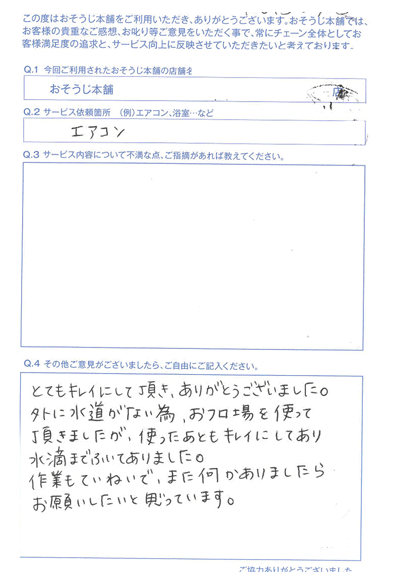 この度はおそうじ本舗をご利用いただき、ありがとうございます。おそうじ本舗では、
お客様の貴重なご感想、お叱り等ご意見をいただく事で、常にチェーン全体としてお
客様満足度の追求と、サービス向上に反映させていただきたいと考えております。
Q.1 今回ご利用されたおそうじ本舗の店舗名
おそうじ本舗 店
Q.2 サービス依頼箇所 （例）エアコン、浴室…など
エアコン
Q.3 サービス内容について不満な点、ご指摘があれば教えてください。
Q.4 その他ご意見がございましたら、ご自由にご記入ください。
とてもキレイにして頂き、ありがとうございました。
外に水道がない為、おフロ場を使って
頂きましたが、使ったあともキレイにしてあり
水滴までふいてありました。
作業もていねいで、また何かありましたら
お願いしたいと思っています。
ご協力ありがとうございました